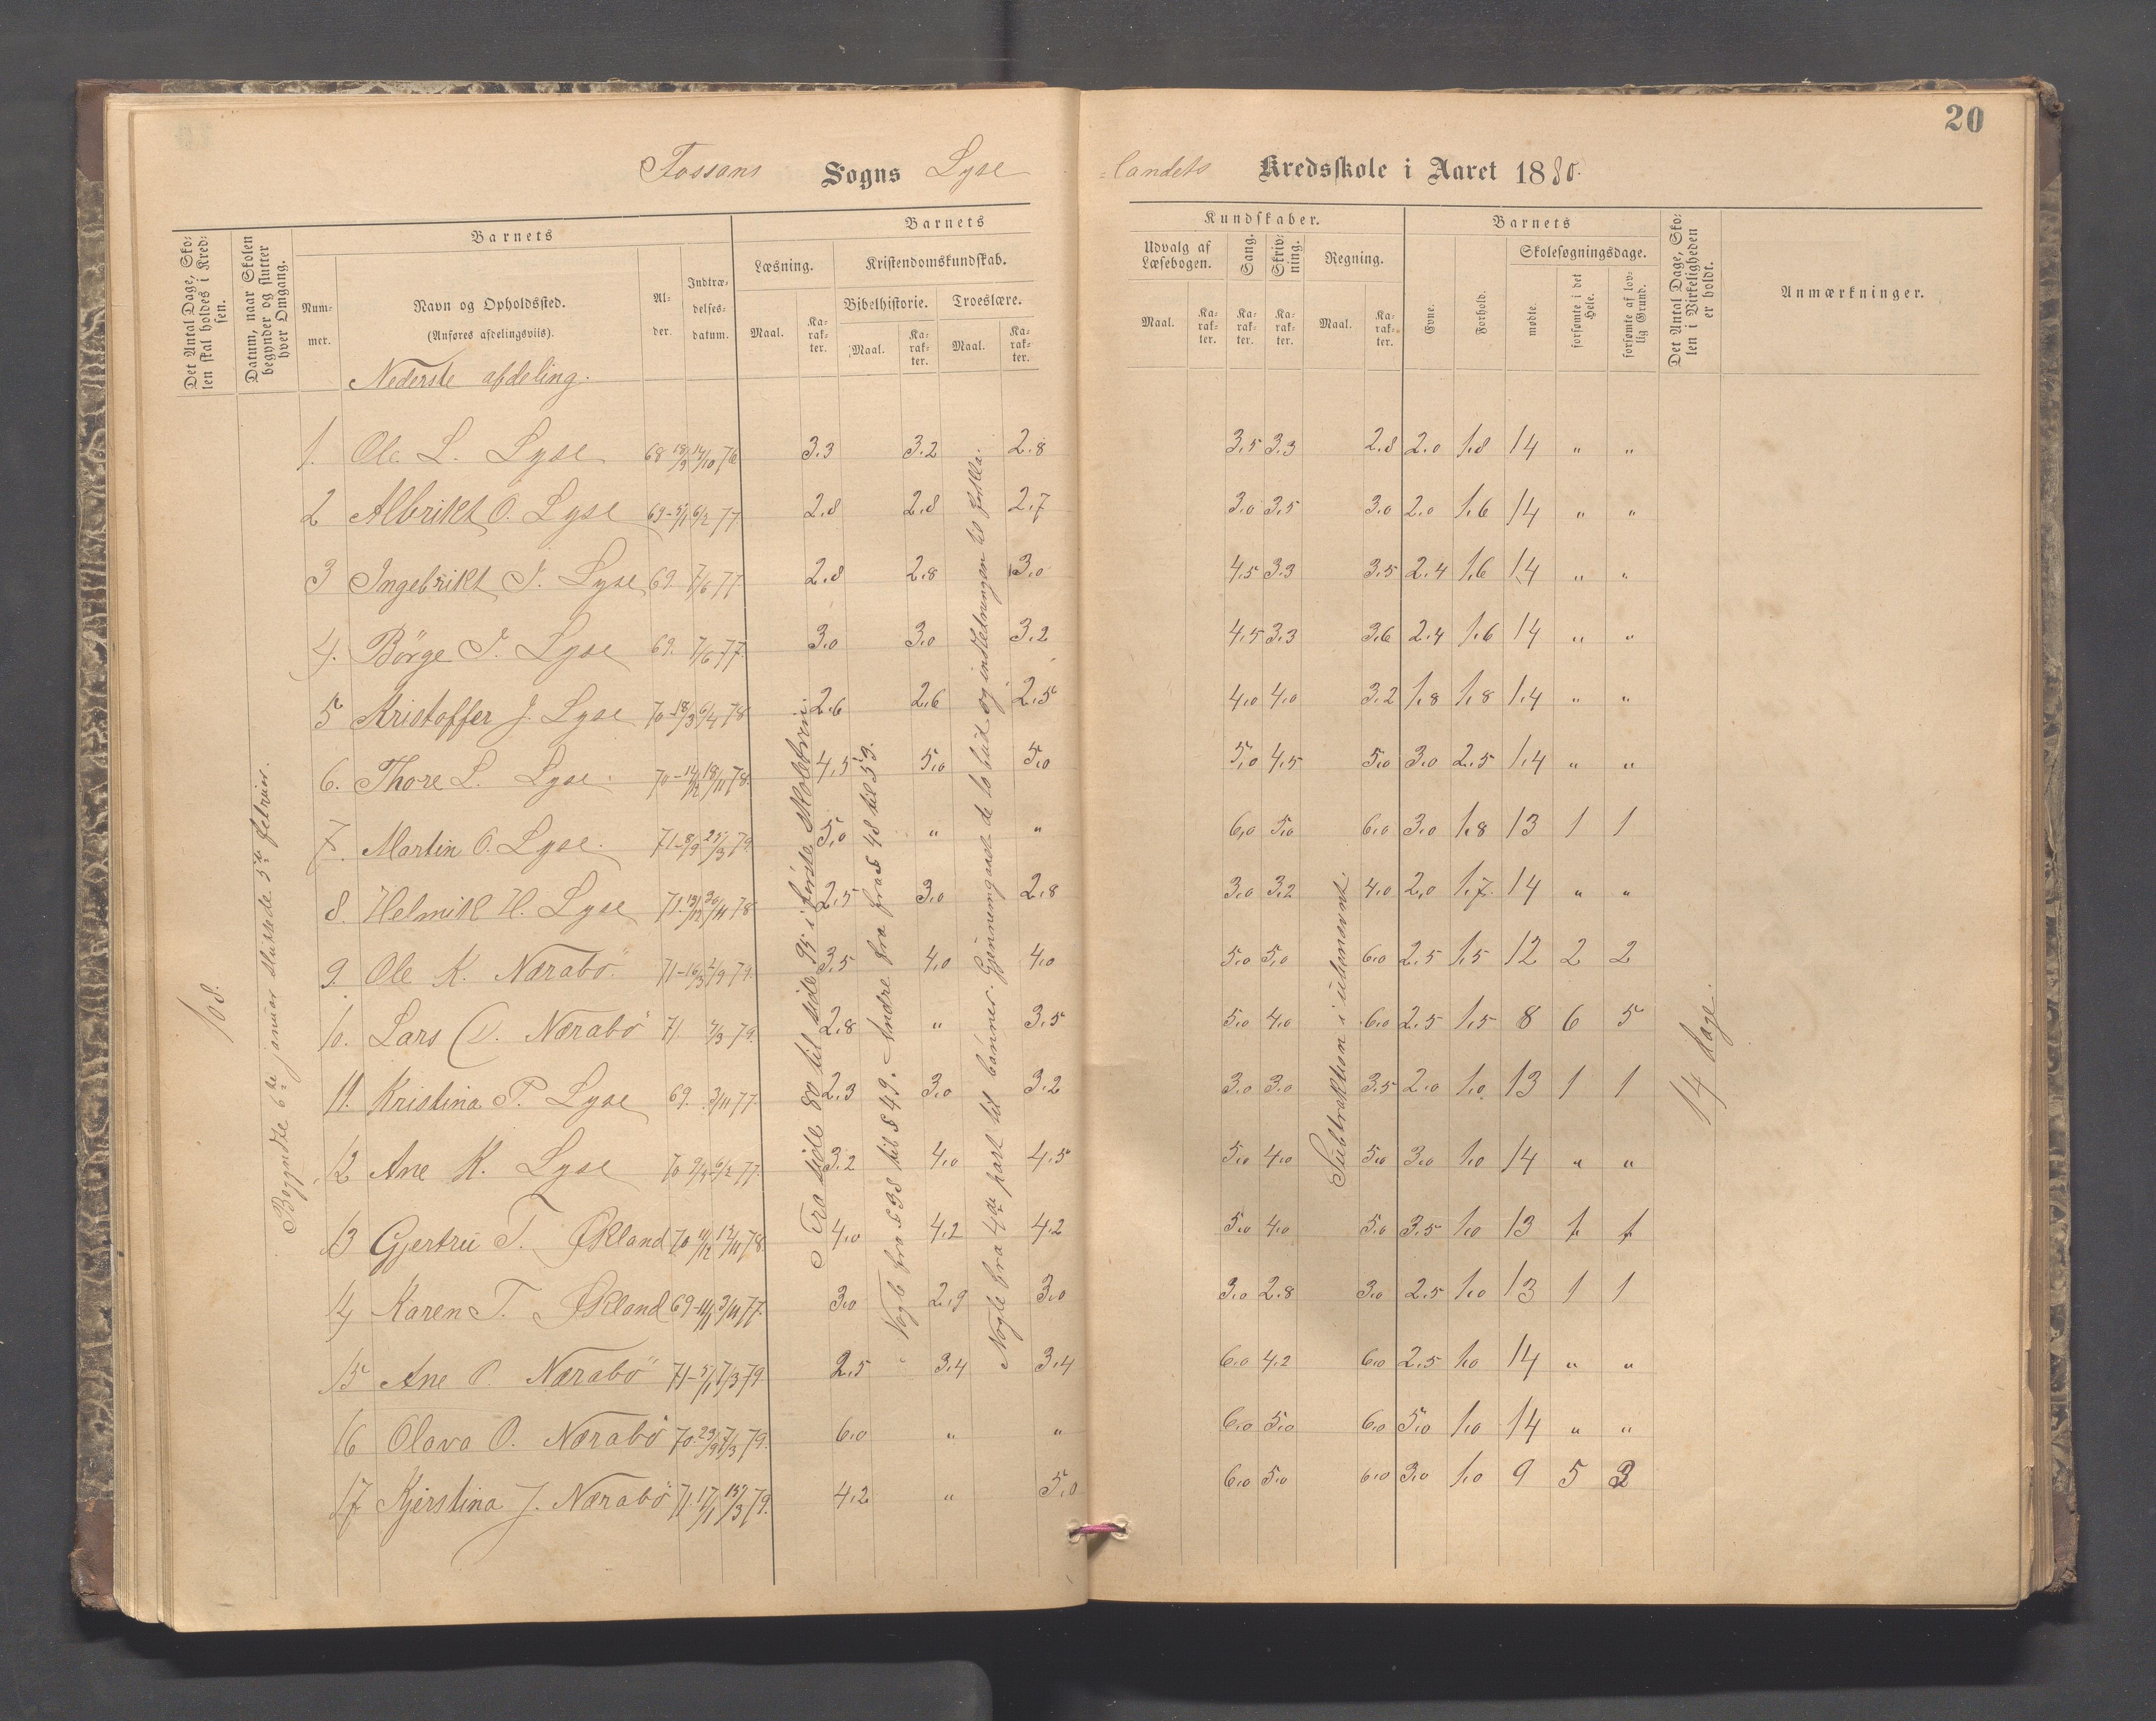 20
Fossans Sogns Lyse landets Kredsskole i Aaret 1880.
Det Antal Dage, Skolen skal holdes i Kredsen.
Datum, naar Skolen begynder og slutter hver Omgang.
Barnets
Nummer.
Navn og Opholdssted.
(Anføres afdelingsviis).
Alder.
Indtrædelsesdatum.
Barnets
Læsning.
Maal.
Karakter.
Kristendomskundskab.
Bibelhistorie.
Maal.
Karakter.
Troeslære.
Maal.
Karakter.
Kundskaber.
Udvalg af Læsebogen.
Maal.
Karakter.
Sang.
Karakter.
Skrivning.
Karakter.
Regning.
Maal.
Karakter.
Barnets
Evne.
Forhold.
Skolesøgningsdage.
mødte.
forsømte i det Hele.
forsømte af lovlig Grund.
Det Antal Dage, Skolen i Virkeligheden er holdt.
Anmærkninger.
Nederste afdeling.
1. Ole L. Lyse 68 18/3 14/10 76 3.3 3.2 2.8 3.5 3.3 2.8 2.0 1.8 14 " "
2 Albrikt O. Lyse 69-5/1 6/2 77 2.8 2.8 2.7 3.0 3.5 3.0 2.0 1.6 14 " "
3 Ingebrikt I. Lyse 69 7/6 77 2.8 2.8 3.0 4.5 3.3 3.5 2.4 1.6 14 " "
4. Börge I. Lyse 69. 7/6 77. 3.0 3.0 3.2 4.5 3.3 3.6 2.4 1.6 14 " "
5 Kristoffer J. Lyse 70-18/3 6/4 78 2.6 2.6 2.5 4.0 4.0 3.2 1.8 1.8 14 " "
6. Thore L. Lyse. 70-14/12 18/11 78. 4.5 5.0 5.0 5.0 4.5 5.0 3.0 2.5 14 " "
7. Martin O. Lyse. 71-8/9 25/3 79 5.0 " " 6.0 5.0 6.0 3.0 1.8 13 1 1
8. Helmik H. Lyse 71. 13/12 20/11 78 2.5 3.0 2.8 3.0 3.2 4.0 2.0 1.7. 14 " "
9. Ole K. Nærabö. 71-16/3 4/9 79. 3.5 4.0 4.0 5.0 5.0 6.0 2.5 1.5 12 2 2
10. Lars O. Nærabö 71 7/3 79. 2.8 " 3.5 5.0 4.0 6.0 2.5 1.5 8 6 5
11. Kristina P. Lyse 69. 3/11 77. 2.3 3.0 3.2 3.0 3.0 3.5 2.0 1.0 13 1 1
12 Ane K. Lyse 70 9/1 6/2 77. 3.2 4.0 4.5 5.0 4.0 5.0 3.0 1.0 14 " "
13 Gjertru T. Økland 70 11/12 12/11 78. 4.0 4.2 4.2 5.0 4.0 5.0 3.5 1.0 13 1 1
14 Karen T. Økland 69-14/1 3/11 77. 3.0 2.9 3.0 3.0 2.8 3.0 2.5 1.0 13 1 1
15 Ane O. Nærabö 71-5/1 7/3 79. 2.5 3.4 3.4 6.0 4.2 6.0 2.5 1.0 14 " "
16 Olava O. Nærabö 70. 23/9 7/3 79. 6.0 " " 6.0 5.0 6.0 5.0 1.0 14 " "
17 Kjerstina J. Nærabö 71. 17/1 15/3 79. 4.2 " 5.0 6.0 5.0 6.0 3.0 1.0 9 5 3
108.
Begyndte 6te januar sluttede 5te februar.
Fra side 80 til side 95 i förste skoletrin.
Nogle fra § 38 til § 49. Andre fra § 48 til 53.
Nogle fra 4de part til bönner. Gjennemgaaet de to bud og indledningen til
Subtraktion i ubenevnt.
14 dage.